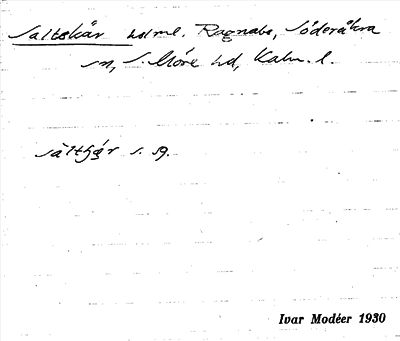 Saltskär holme. Ragnabo, Söderåkra
sn, S. Möre hd, Kalm. l.
sàltʃǽr s. sg.
Ivar Modéer 1930